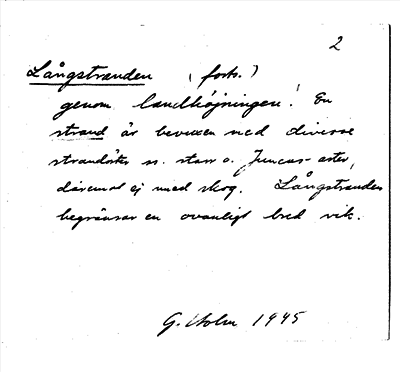 2
Långstranden (forts.)
genom landhöjningen! En
strand är bevuxen med diverse
strandväxter ss. starr o. Juncus-arter,
däremot ej med skog. Långstranden
begränsar en ovanligt bred vik.
G. Holm 1945